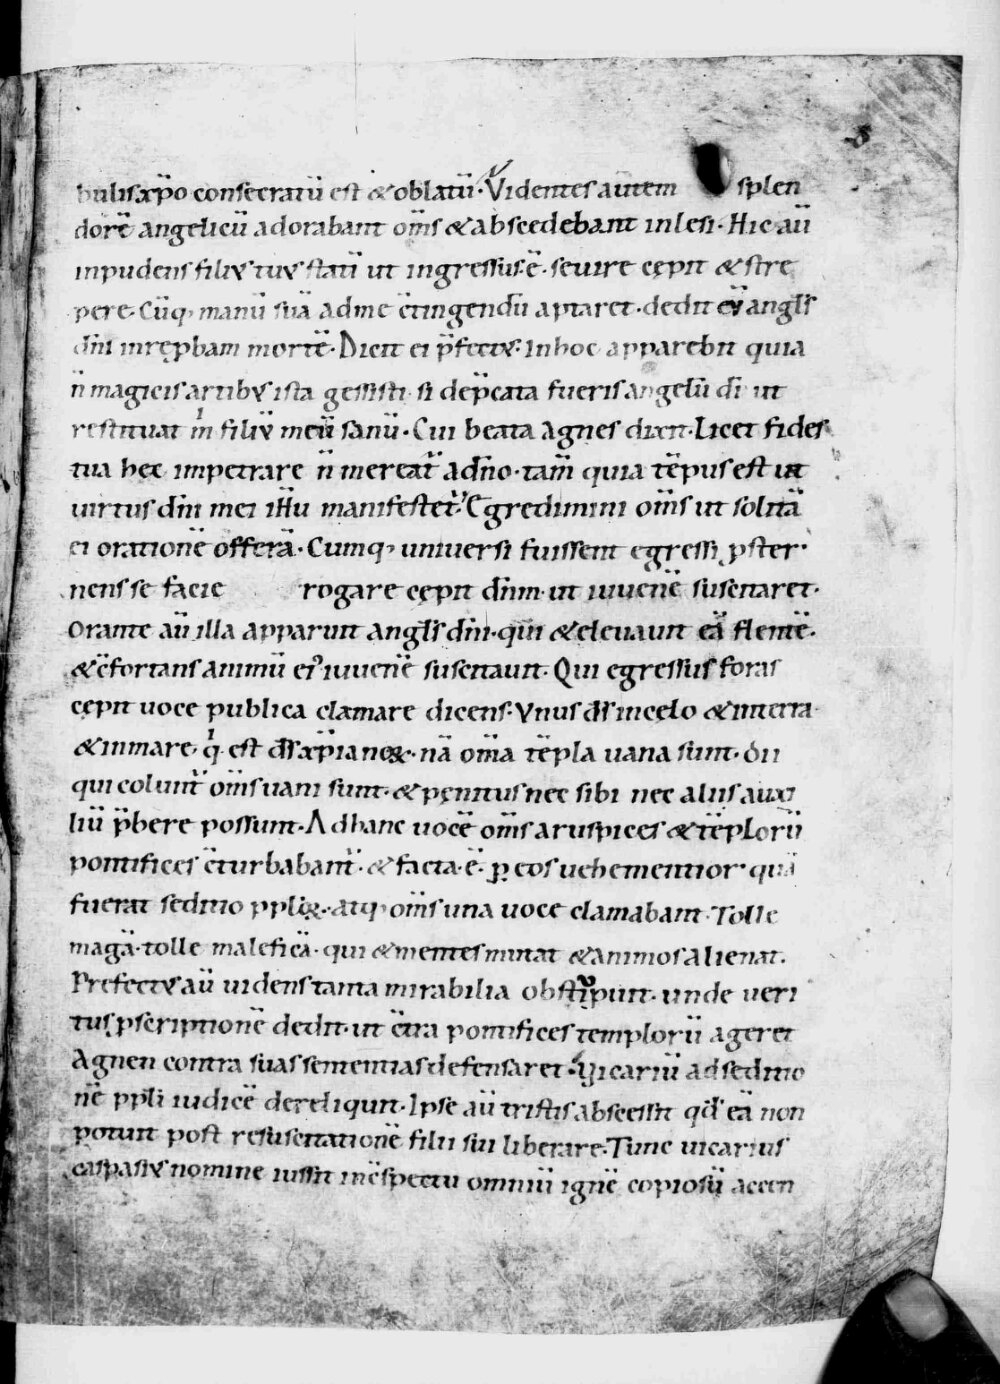 bulis xp̄o consecratū est & oblatū· Videntes autem splen
dorē angelicū adorabant om̄s & abscedebant inlesi· Hic aū
inpudens filiꝰ tuꝰ statī ut ingressus·ē· sevire cępit & stre
pere· Cūq; manū suā ad me c̄tingendū aptaret· dedit eū angl̄s
dn̄i in rępbam mortē· Dicit ei p̄fectꝰ· In hoc apparebit quia
n̄ magicis artibꝰ ista gessisti· si dep̄cata fueris angelū dī ut
restituat m̄ filiū meū sanū· Cui beata Agnes dixit· Licet fides
tua hec impetrare n̄ mereat̄ a dn̄o· tam̄ quia tēpus est ut
uirtus dn̄i mei ih̄u manifestet̄· Egredimini om̄s ut solitā
ei orationē offerā· Cumq; universi fuissent egressi ꝓster·
nens se facie rogare cępit dn̄m· ut iuuenē suscitaret·
Orante aū illa apparuit angl̄s dn̄i· qui & eleuauit eā flentē·
& c̄fortans animū eiꝰ iuuenē suscitauit· Qui egressus foras
cępit uoce publica clamare dicens· Vnus ds̄ in cęlo & in terra
& in mare· q̄ est ds̄ xp̄ianoꝝ· nā om̄a tēpla uana sunt· dii
qui colunt̄ om̄s uani sunt· & pęnitus nec sibi nec aliis auxi
liū p̄bere possunt· Ad hanc uocē om̄s aruspices & tēplorū
pontifices c̄turbabant̄· & facta·ē· ꝑ eos uehementior quā
fuerat seditio ppl̄oꝝ· atq; om̄s una uoce clamabant· Tolle
magā· tolle maleficā· qui & mentes mutat & animos alienat·
Prefectꝰ aū uidens tanta mirabilia obstipuit· unde ueri
tus p̄scriptionē dedit· ut c̄tra pontifices templorū ageret
Agnen contra suas sententias defensaret· Vicariū ad seditio
nē ppl̄i iudicē dereliquit· Ipse aū tristis abscessit qd̄ eā non
potuit post resuscitationē filii sui liberare· Tunc uicarius
caspasiꝰ nomine iussit in c̄spectu omniū ignē copiosū accen